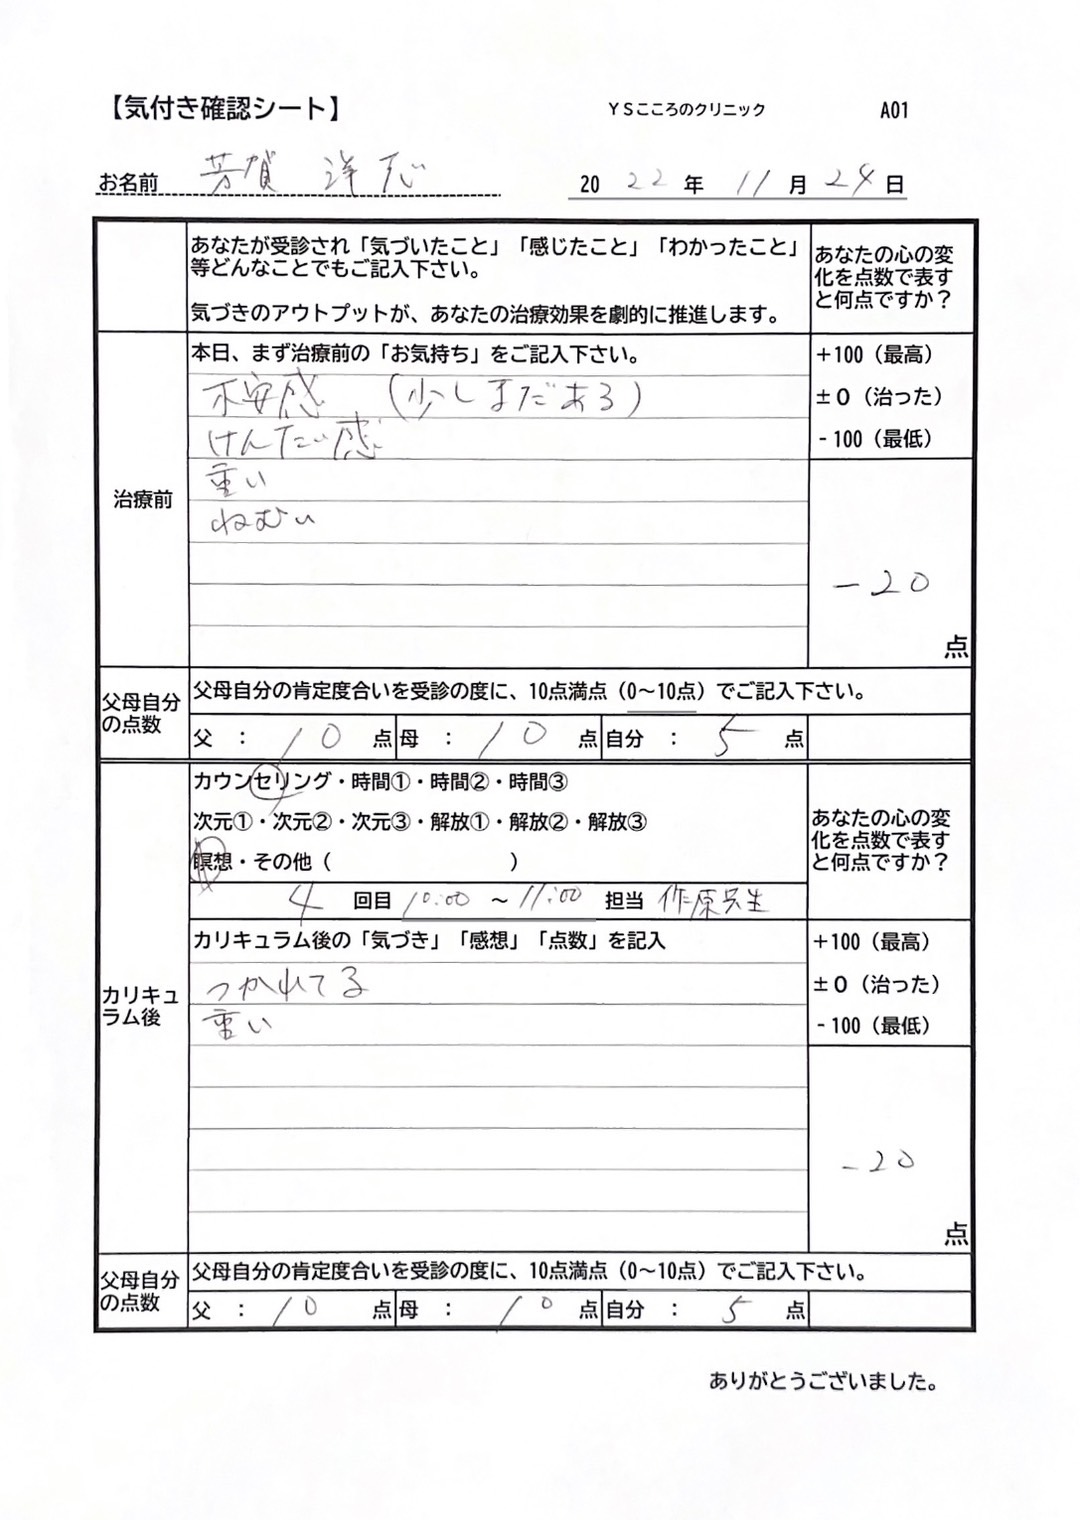 【気付き確認シート】 ＹＳこころのクリニック A01
お名前 芳賀 洋志 2022年11月24日
あなたが受診され「気づいたこと」「感じたこと」「わかったこと」
等どんなことでもご記入下さい。
気づきのアウトプットが、あなたの治療効果を劇的に推進します。
あなたの心の変
化を点数で表す
と何点ですか？
治療前
本日、まず治療前の「お気持ち」をご記入下さい。
不安感 （少しまだある）
けんたい感
重い
ねむい
+100（最高）
±0（治った）
-100（最低）
-20
点
父母自分
の点数
父母自分の肯定度合いを受診の度に、10点満点（0～10点）でご記入下さい。
父 ： 10 点 母 ： 10 点 自分 ： 5 点
カリキュ
ラム後
カウンセリング・時間①・時間②・時間③
次元①・次元②・次元③・解放①・解放②・解放③
瞑想・その他（ ）
4 回目 10:00 ～ 11:00 担当 作原先生
あなたの心の変
化を点数で表す
と何点ですか？
カリキュラム後の「気づき」「感想」「点数」を記入
つかれてる
重い
+100（最高）
±0（治った）
-100（最低）
-20
点
父母自分
の点数
父母自分の肯定度合いを受診の度に、10点満点（0～10点）でご記入下さい。
父 ： 10 点 母 ： 10 点 自分 ： 5 点
ありがとうございました。